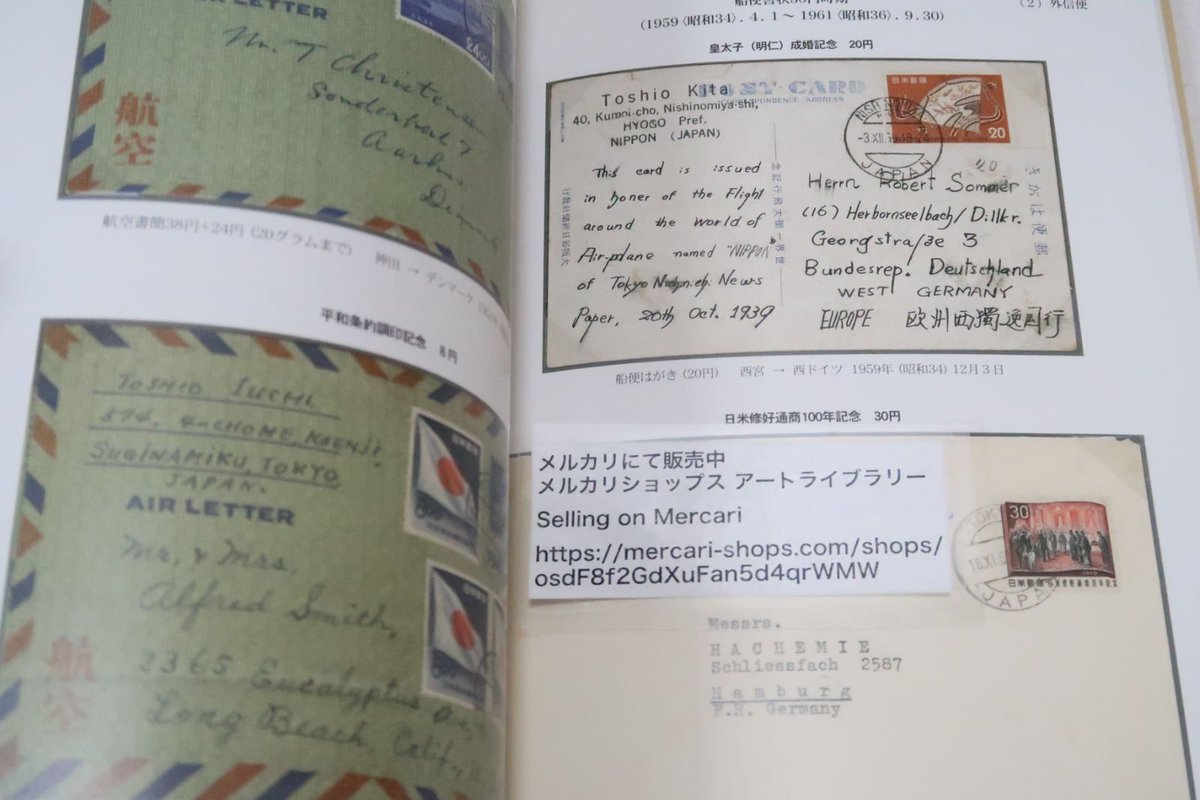 AIR LETTER
Mr. T Christensen
Sonderport 7
Aarhus
Denmark
航空
航空書簡38円+24円 (20グラムまで) 神田 → デンマーク
平和条約調印記念 8円
TOSHIO IUCHI
574, 4-CHOME, KOENJI
SUGINAMIKU, TOKYO
JAPAN.
AIR LETTER
Mr. & Mrs.
Alfred Smith,
2365 Eucalyptus
Long Beach, Calif.,
航空
(1959〈昭和34〉. 4. 1 ~ 1961〈昭和36〉. 9. 30)
(2) 外信便
皇太子 (明仁) 成婚記念 20円
POST CARD
CORRESPONDENCE ADDRESS
Toshio Kita
40, Kumoi-cho, Nishinomiya-shi,
HYOGO Pref.
NIPPON (JAPAN)
日本郵便
20
-3 XII.59.18-24
JAPAN
This card is issued
in honer of the Flight
around the world of
Air-plane named "NIPPON"
of Tokyo Nichi. News
Paper, 20th Oct. 1939
きがは便郵
Herrn Robert Sommer
(16) Herbornseelbach/Dillkr.
Georgstraße 3
Bundesrep. Deutschland
WEST GERMANY
EUROPE 欧洲西獨逸国行
船便はがき (20円) 西宮 → 西ドイツ 1959年 (昭和34) 12月3日
日米修好通商100年記念 30円
メルカリにて販売中
メルカリショップス アートライブラリー
Selling on Mercari
https://mercari-shops.com/shops/
osdF8f2GdXuFan5d4qrWMW
30
JAPAN
Messrs.
HACHEMIE
Schliessfach 2587
Hamburg
F.R. Germany